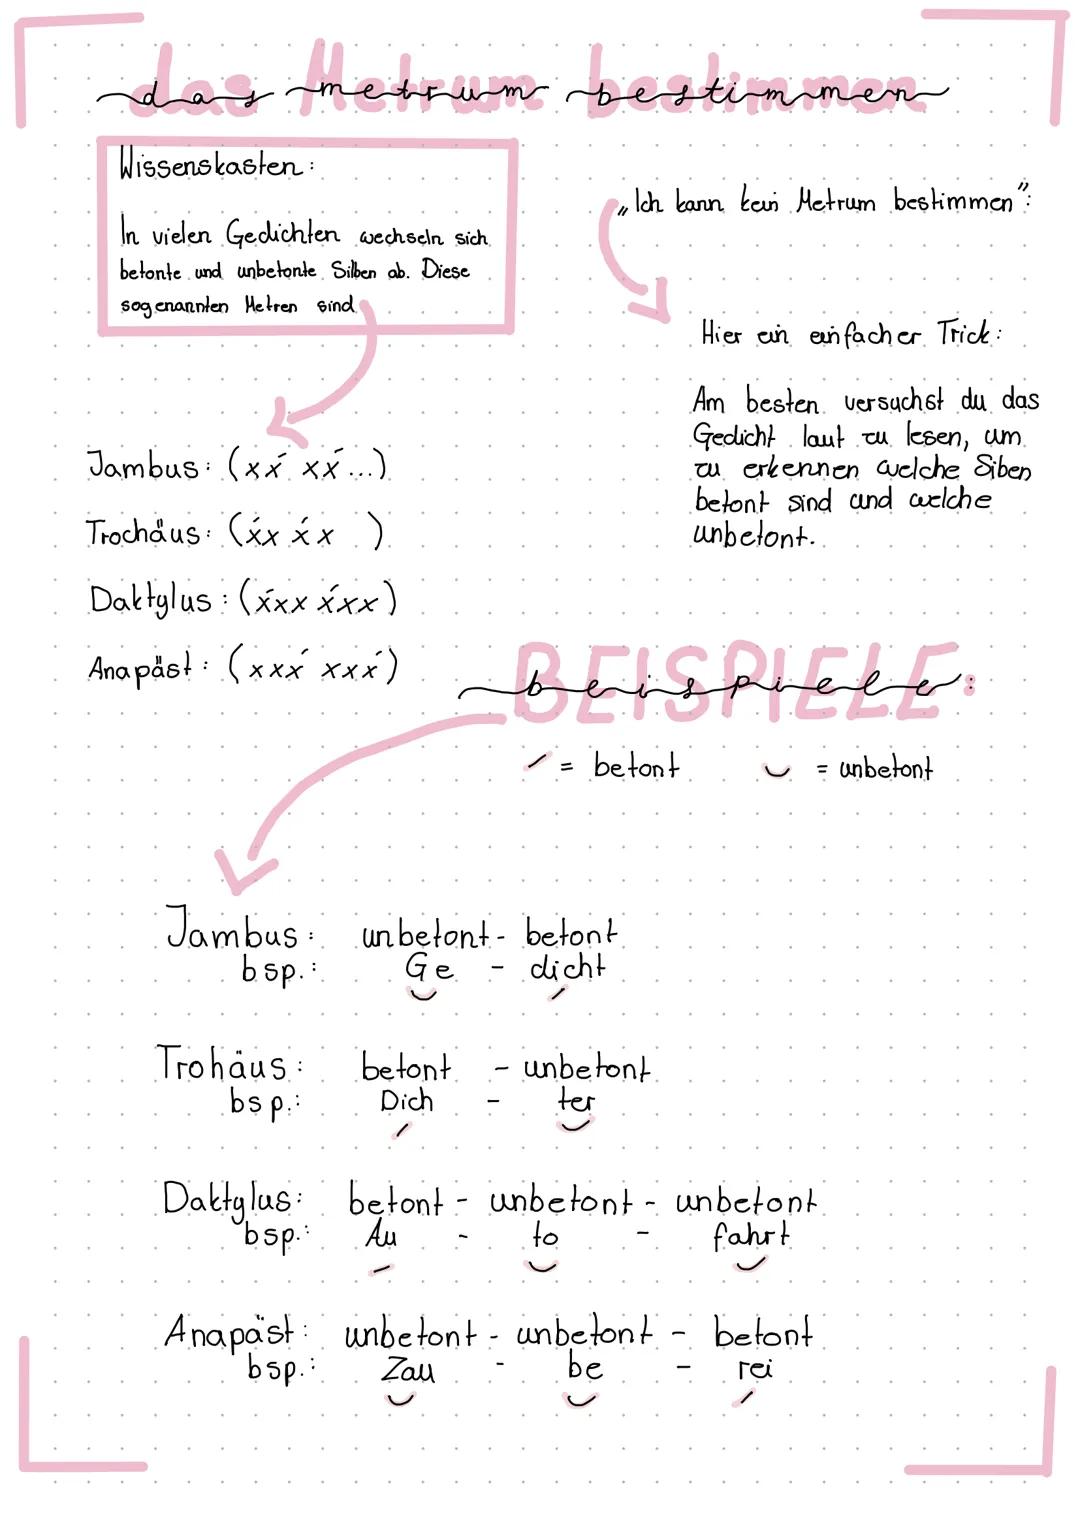 das Metrum bestimmen
Wissenskasten:
In vielen Gedichten wechseln sich
betonte und unbetonte Silben ab. Diese
sogenannten Metren sind
„Ich kann kein Metrum bestimmen":
Hier ein einfacher Trick:
Am besten versuchst du das
Gedicht laut zu lesen, um
zu erkennen welche Siben
betont sind und welche
unbetont.
Jambus: (xx́ xx́...)
Trochäus: (x́x x́x )
Daktylus: (x́xx x́xx)
Anapäst: (xxx́ xxx́)
BEISPIELE:
beispiele
/ = betont ◡ = unbetont
Jambus: unbetont - betont
bsp.: Ge - dicht
◡ /
Trohäus: betont - unbetont
bsp.: Dich - ter
/ ◡
Daktylus: betont - unbetont - unbetont
bsp.: Au - to - fahrt
/ ◡ ◡
Anapäst: unbetont - unbetont - betont
bsp.: Zau - be - rei
◡ ◡ /